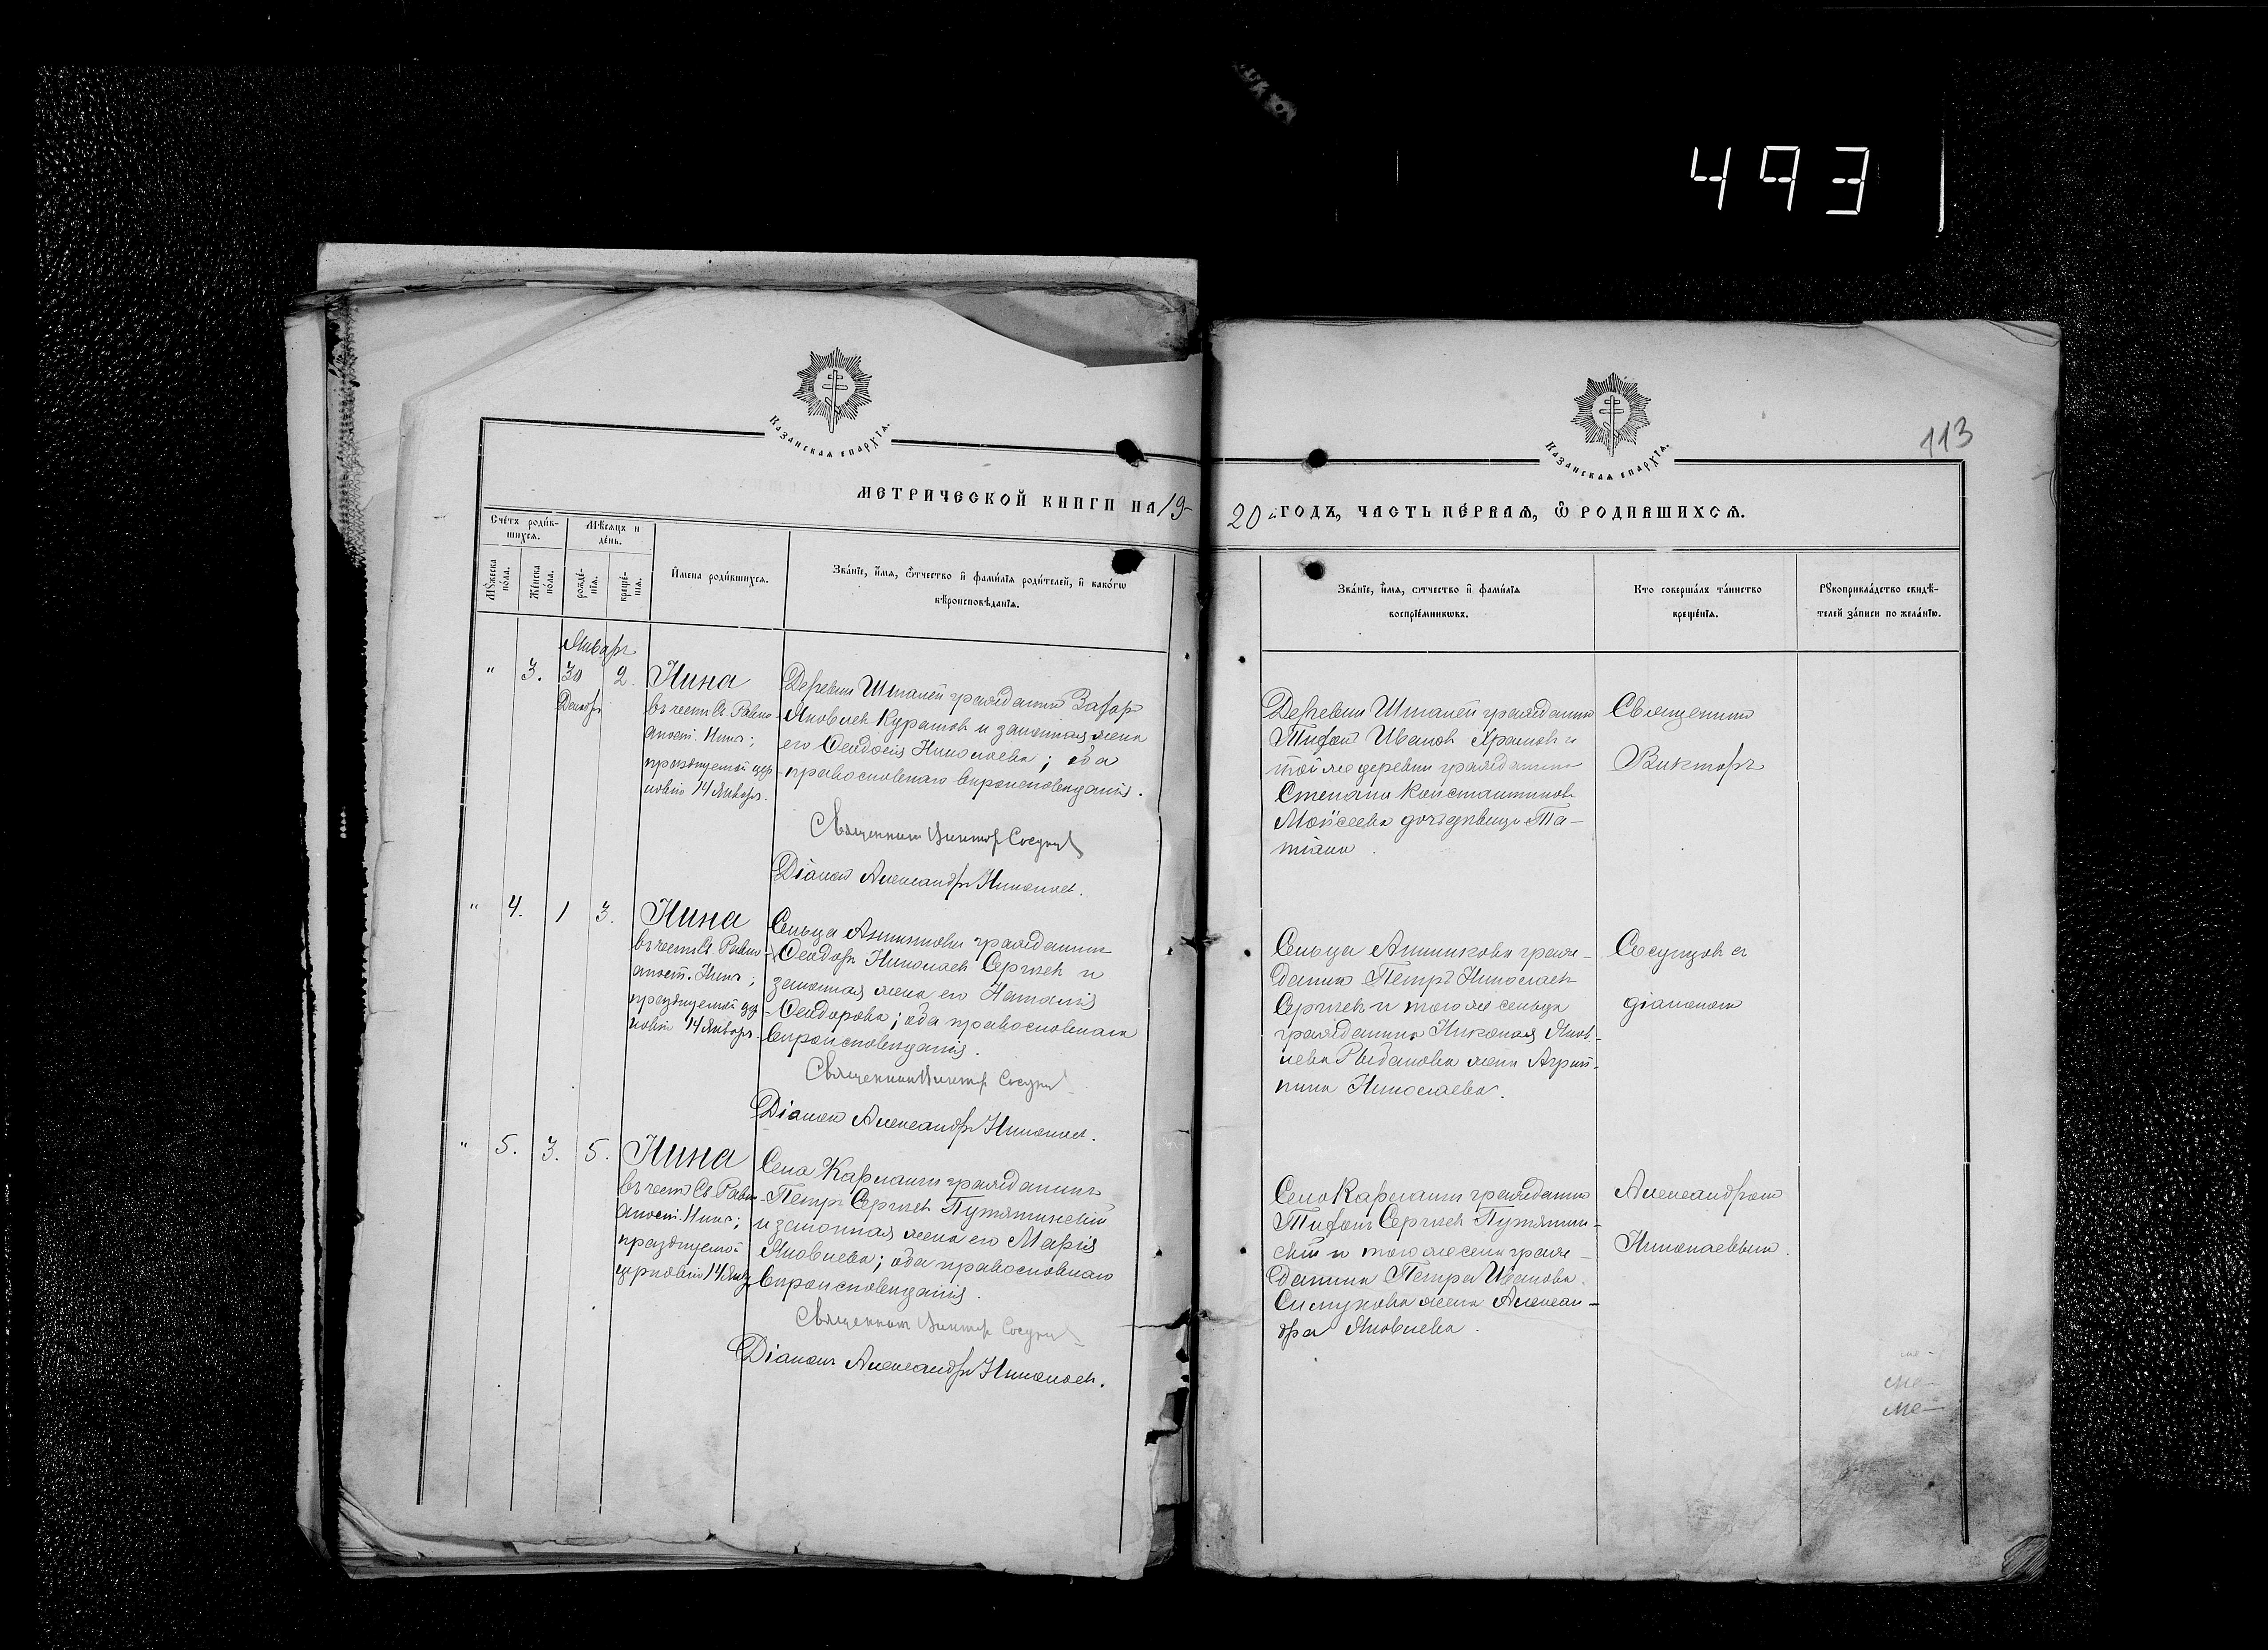 493
113
Казанская епархїѧ.
Казанская епархїѧ.
МЕТРИЧЕСКОЙ КНИГИ НА 19
20 ГОДЪ, ЧАСТЬ ПЕРВАѦ, Ѽ РОДИВШИХСѦ.
Счетъ родив-
шихсѧ.
Мѣсѧцъ и
день.
Мꙋжеска
пола.
Женска
пола.
рожде-
нїѧ.
креще-
нїѧ.
Имена родившихсѧ.
Званїе, имѧ, ѿчество и фамилїѧ родителей, и какогѡ
вѣроисповѣданїѧ.
Званїе, имѧ, ѿчество и фамилїѧ
воспрїемникѡвъ.
Кто совершалъ таинство
крещенїѧ.
Рꙋкоприкладство свидѣ-
телей записи по желанїю.
Январь
" 3. 30 2. Нина
Декабрь
въ честь Св. Равно-
апост. Нины;
празднуемой цер-
ковію 14 Января.
Деревни Шигалей гражданин Захар
Яковлев Курашов и законная жена
его Феодосія Николаева; оба
православнаго вероисповеданія.
Священник Виктор Сосунцов
Діакон Александр Николаев.
Деревни Шигалей гражданин
Тифон Иванов Храмов и
той же деревни гражданина
Степана Константинова
Моисеева дочь девица Та-
тіана.
Священник
Викторъ
" 4. 1 3. Нина
въ честь Св. Равно-
апост. Нины;
празднуемой цер-
ковію 14 Января.
Сельца Феодоръ Николаев Сергеев и
законная жена его Наталія
Феодорова; оба православнаго
вероисповеданія.
Священник Виктор Сосунцов
Діакон Александр Николаев.
Сельца граж-
данин Петръ Николаев
Сергеев и того же сельца
гражданина Николая Яков-
лева жена Агрип-
пина Николаева.
Сосунцов с
діаконом
" 5. 3. 5. Нина
въ честь Св. Равно-
апост. Нины;
празднуемой
церковію 14 Янв.
Села Кармыши гражданинъ
Петръ Сергеев Путятинский
и законная жена его Марія
Яковлева; оба православнаго
вероисповеданія.
Священник Виктор Сосунцов
Діаконъ Александр Николаев.
Села Кармыши гражданин
Тифон Сергеев Путятин-
ский и того же села граж-
данина Петра Иванова
жена Алексан-
дра Яковлева.
Александром
Николаевым.